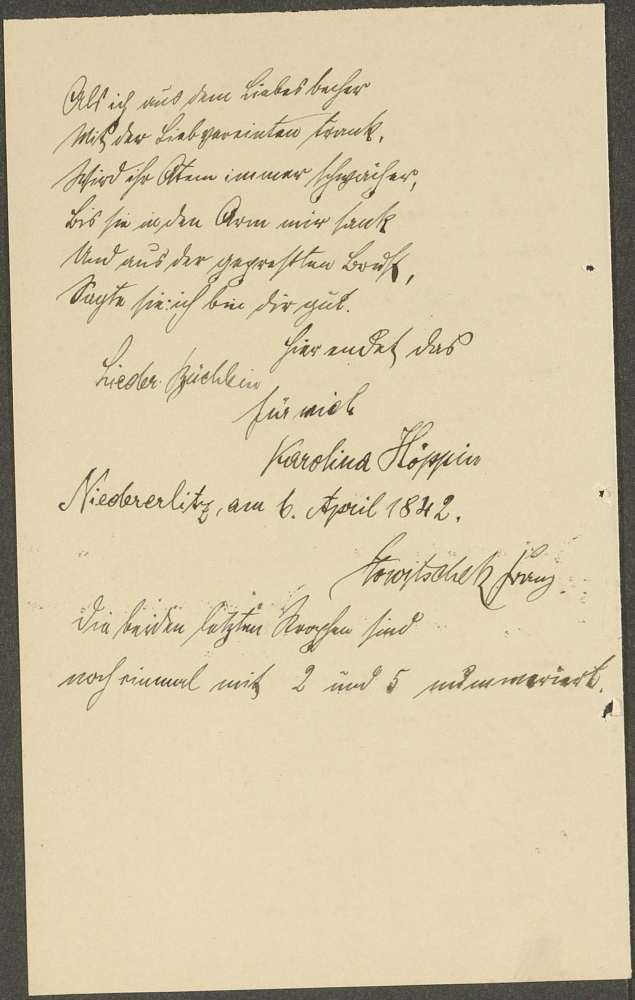 Als ich aus dem Liebesbecher
Mit der Liebvereinten trank,
Wird ihr Atem immer schwächer,
Bis sie in den Arm mir sank
Und aus der gepreßten Brust,
Sagte sie: ich bin dir gut.
Hier endet das
Lieder-Büchlein
für mich
Karolina Höppin
Niedererlitz, am 6. April 1842.
Franz
Die beiden letzten Strophen sind
noch einmal mit 2 und 5 nummeriert.